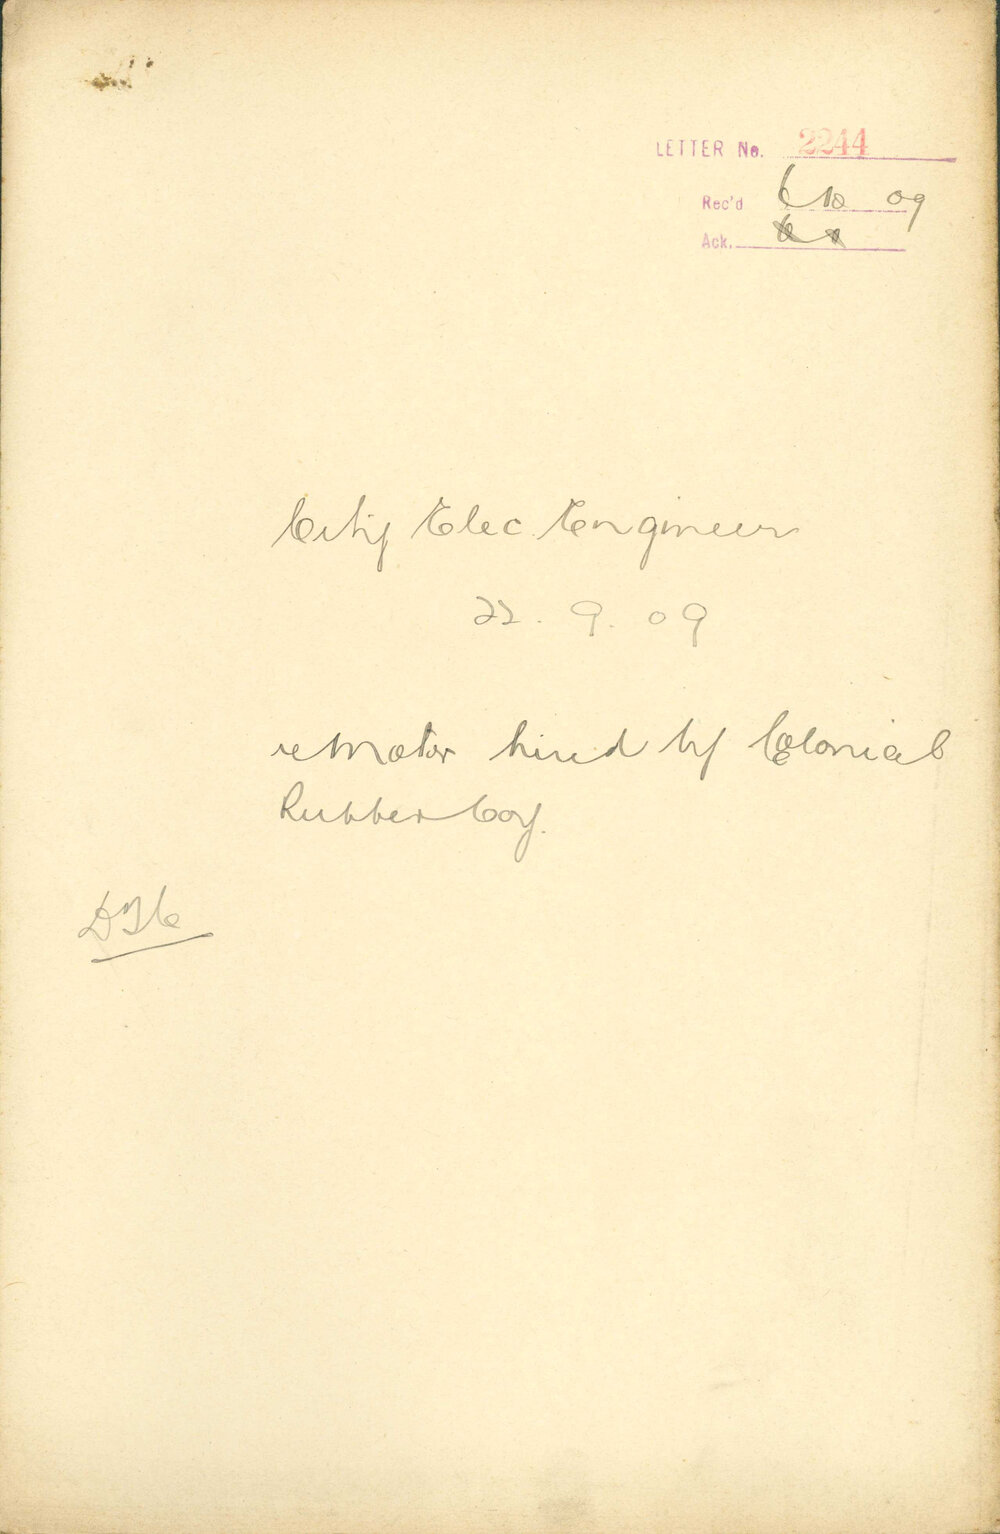 LETTER No. 2244
Rec'd 6 12 09
Ack.
City Elec. Engineer
22. 9. 09
re Motor hired by Colonial
Rubber Coy.